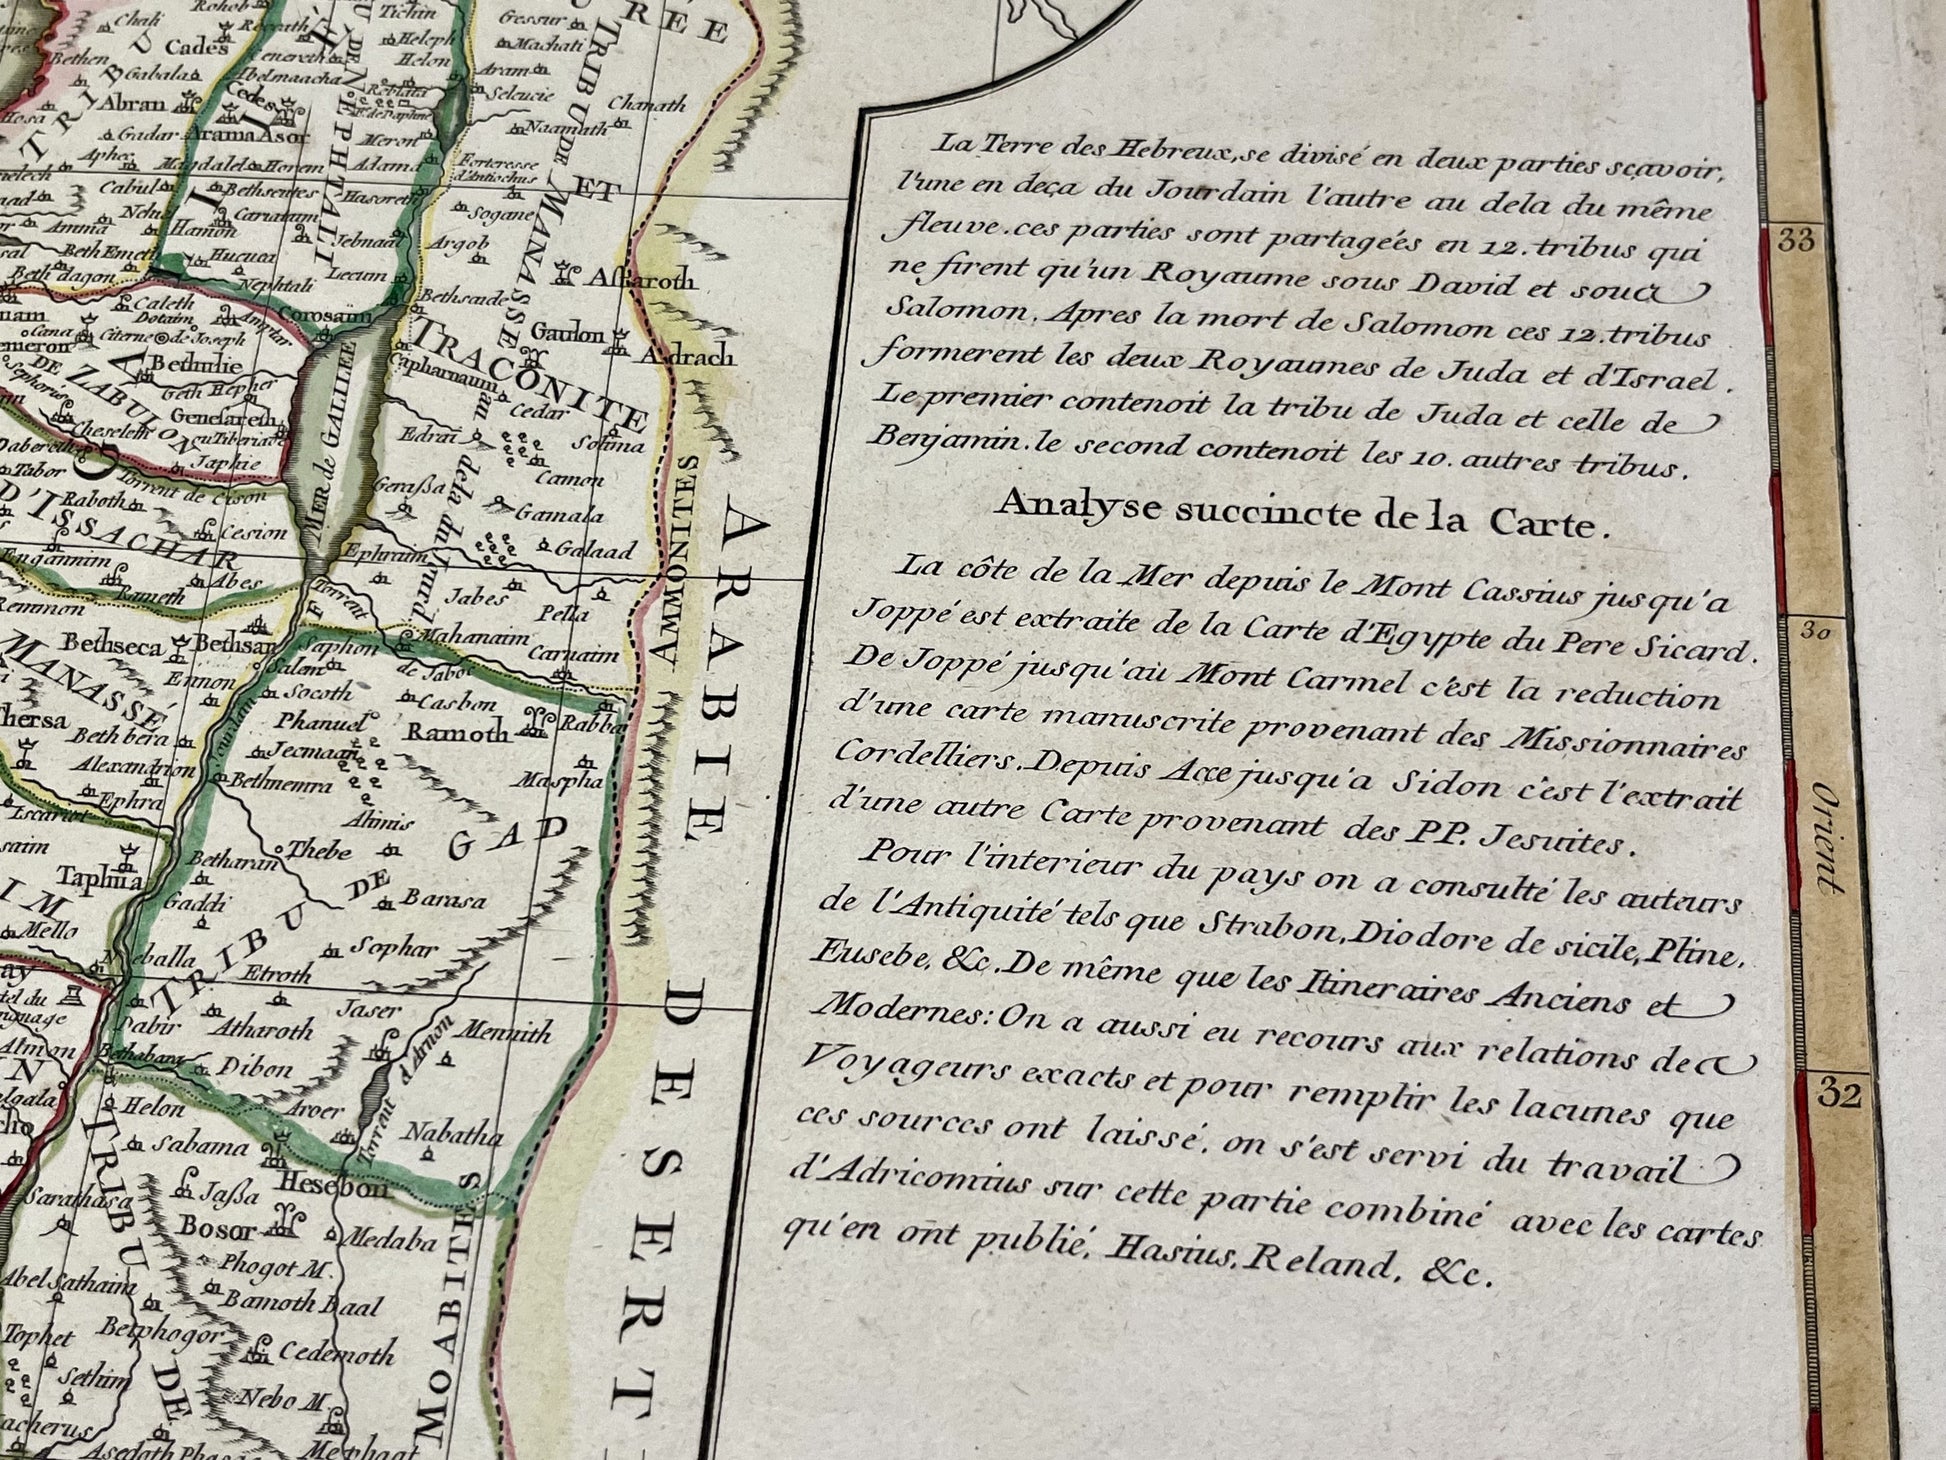 La Terre des Hebreux, se divisé en deux parties sçavoir,
l'une en deça du Jourdain l'autre au dela du même
fleuve. ces parties sont partagéés en 12. tribus qui
ne firent qu'un Royaume sous David et sous
Salomon. Apres la mort de Salomon ces 12. tribus
formerent les deux Royaumes de Juda et d'Israel.
Le premier contenoit la tribu de Juda et celle de
Benjamin. le second contenoit les 10. autres tribus.
Analyse succincte de la Carte.
La côte de la Mer depuis le Mont Cassius jusqu'a
Joppé est extraite de la Carte d'Egypte du Pere Sicard.
De Joppé jusqu'au Mont Carmel c'est la reduction
d'une carte manuscrite provenant des Missionnaires
Cordelliers. Depuis Acce jusqu'a Sidon c'est l'extrait
d'une autre Carte provenant des PP. Jesuites.
Pour l'interieur du pays on a consulté les auteurs
de l'Antiquité tels que Strabon, Diodore de sicile, Pline,
Eusebe, &c. De même que les Itineraires Anciens et
Modernes: On a aussi eu recours aux relations de
Voyageurs exacts et pour remplir les lacunes que
ces sources ont laissé, on s'est servi du travail
d'Adricomius sur cette partie combiné avec les cartes
qu'en ont publié, Hasius, Reland, &c.
33
30
Orient
32
ARABIE DESERT
AMMONITES
MOABITES
TRACONITE
TRIBU DE MANASSE
ET
TRIBU DE GAD
TRIBU DE
DE ZABULON
D'ISSACHAR
MANASSÉ
MER de GALILÉE
au dela du Jourd.
Tichin
Gessur
Heleph
Machati
Helon
Aram
Seleucie
Chanath
Naamath
Meron
Adama
Forteresse
d'Antiochus
Hasoreth
Sogane
Jebnaal
Argob
Lecum
Bethsaide
Astaroth
Gaulon
Adrach
Corosaim
Capharnaum
Cedar
Edrai
Solima
Camon
Gerassa
Gamala
Galaad
Ephraim
Jabes
Pella
Torrent
Mahanaim
Carnaim
de Jaboc
Saphon
Salem
Socoth
Casbon
Phanuel
Ramoth
Rabba
Jecmaan
Bethnemra
Maspha
Ahinis
Thebe
Betharan
Gaddi
Barasa
Sophar
Etroth
Jaser
Dabir
Atharoth
Mennith
Torrent d'Arnon
Bethabara
Dibon
Helon
Aroer
Nabatha
Sabama
Hesebon
Jassa
Sarathasa
Bosor
Medaba
Phogot M.
Abel Sathaim
Bamoth Baal
Tophet
Betphogor
Cedemoth
Sethim
Nebo M.
Mephaat
Cades
Chali
Rohob
Gabala
Abelmaacha
Abran
Cedes
Gadar
Arama
Asor
Aphec
Magdalel
Horem
Cabul
Bethsentes
Canatam
Amma
Hamon
Beth Emeth
Hucuca
Beth dagon
Nephtali
Caleth
Dotaim
Citerne de Joseph
Cana
Bethulie
Geth Hepher
Sephoris
Genesareth
ou Tiberiade
Cheseleth
Japhie
Dabereth
Tabor
Torrent de Cison
Raboth
Cesion
Engannim
Abes
Rameth
Remmon
Bethseca
Bethsan
Ennon
Thersa
Beth bera
Alexandrion
Ephra
Iscariot
Taphua
Mello
Neballa